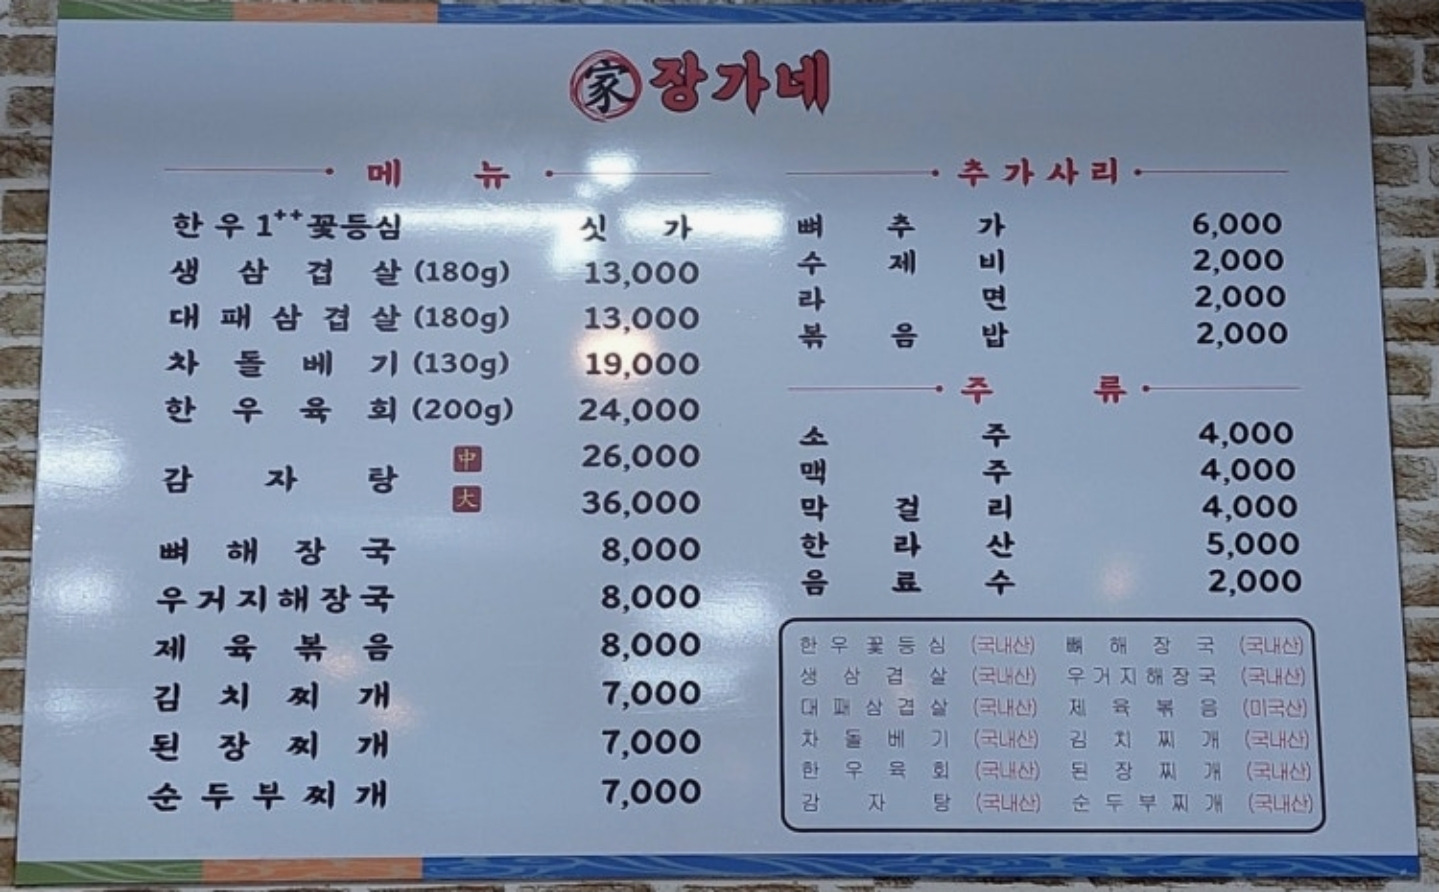 家 장가네
메뉴
한우1++꽃등심 싯가
생삼겹살 (180g) 13,000
대패삼겹살 (180g) 13,000
차돌베기 (130g) 19,000
한우육회 (200g) 24,000
감자랑 中 26,000
大 36,000
뼈해장국 8,000
우거지해장국 8,000
제육볶음 8,000
김치찌개 7,000
된장찌개 7,000
순두부찌개 7,000
추가사리
뼈추가 6,000
수제비 2,000
라면 2,000
볶음밥 2,000
주류
소주 4,000
맥주 4,000
막걸리 4,000
한라산 5,000
음료수 2,000
한우꽃등심 (국내산) 뼈해장국 (국내산)
생삼겹살 (국내산) 우거지해장국 (국내산)
대패삼겹살 (국내산) 제육볶음 (미국산)
차돌베기 (국내산) 김치찌개 (국내산)
한우육회 (국내산) 된장찌개 (국내산)
감자탕 (국내산) 순두부찌개 (국내산)